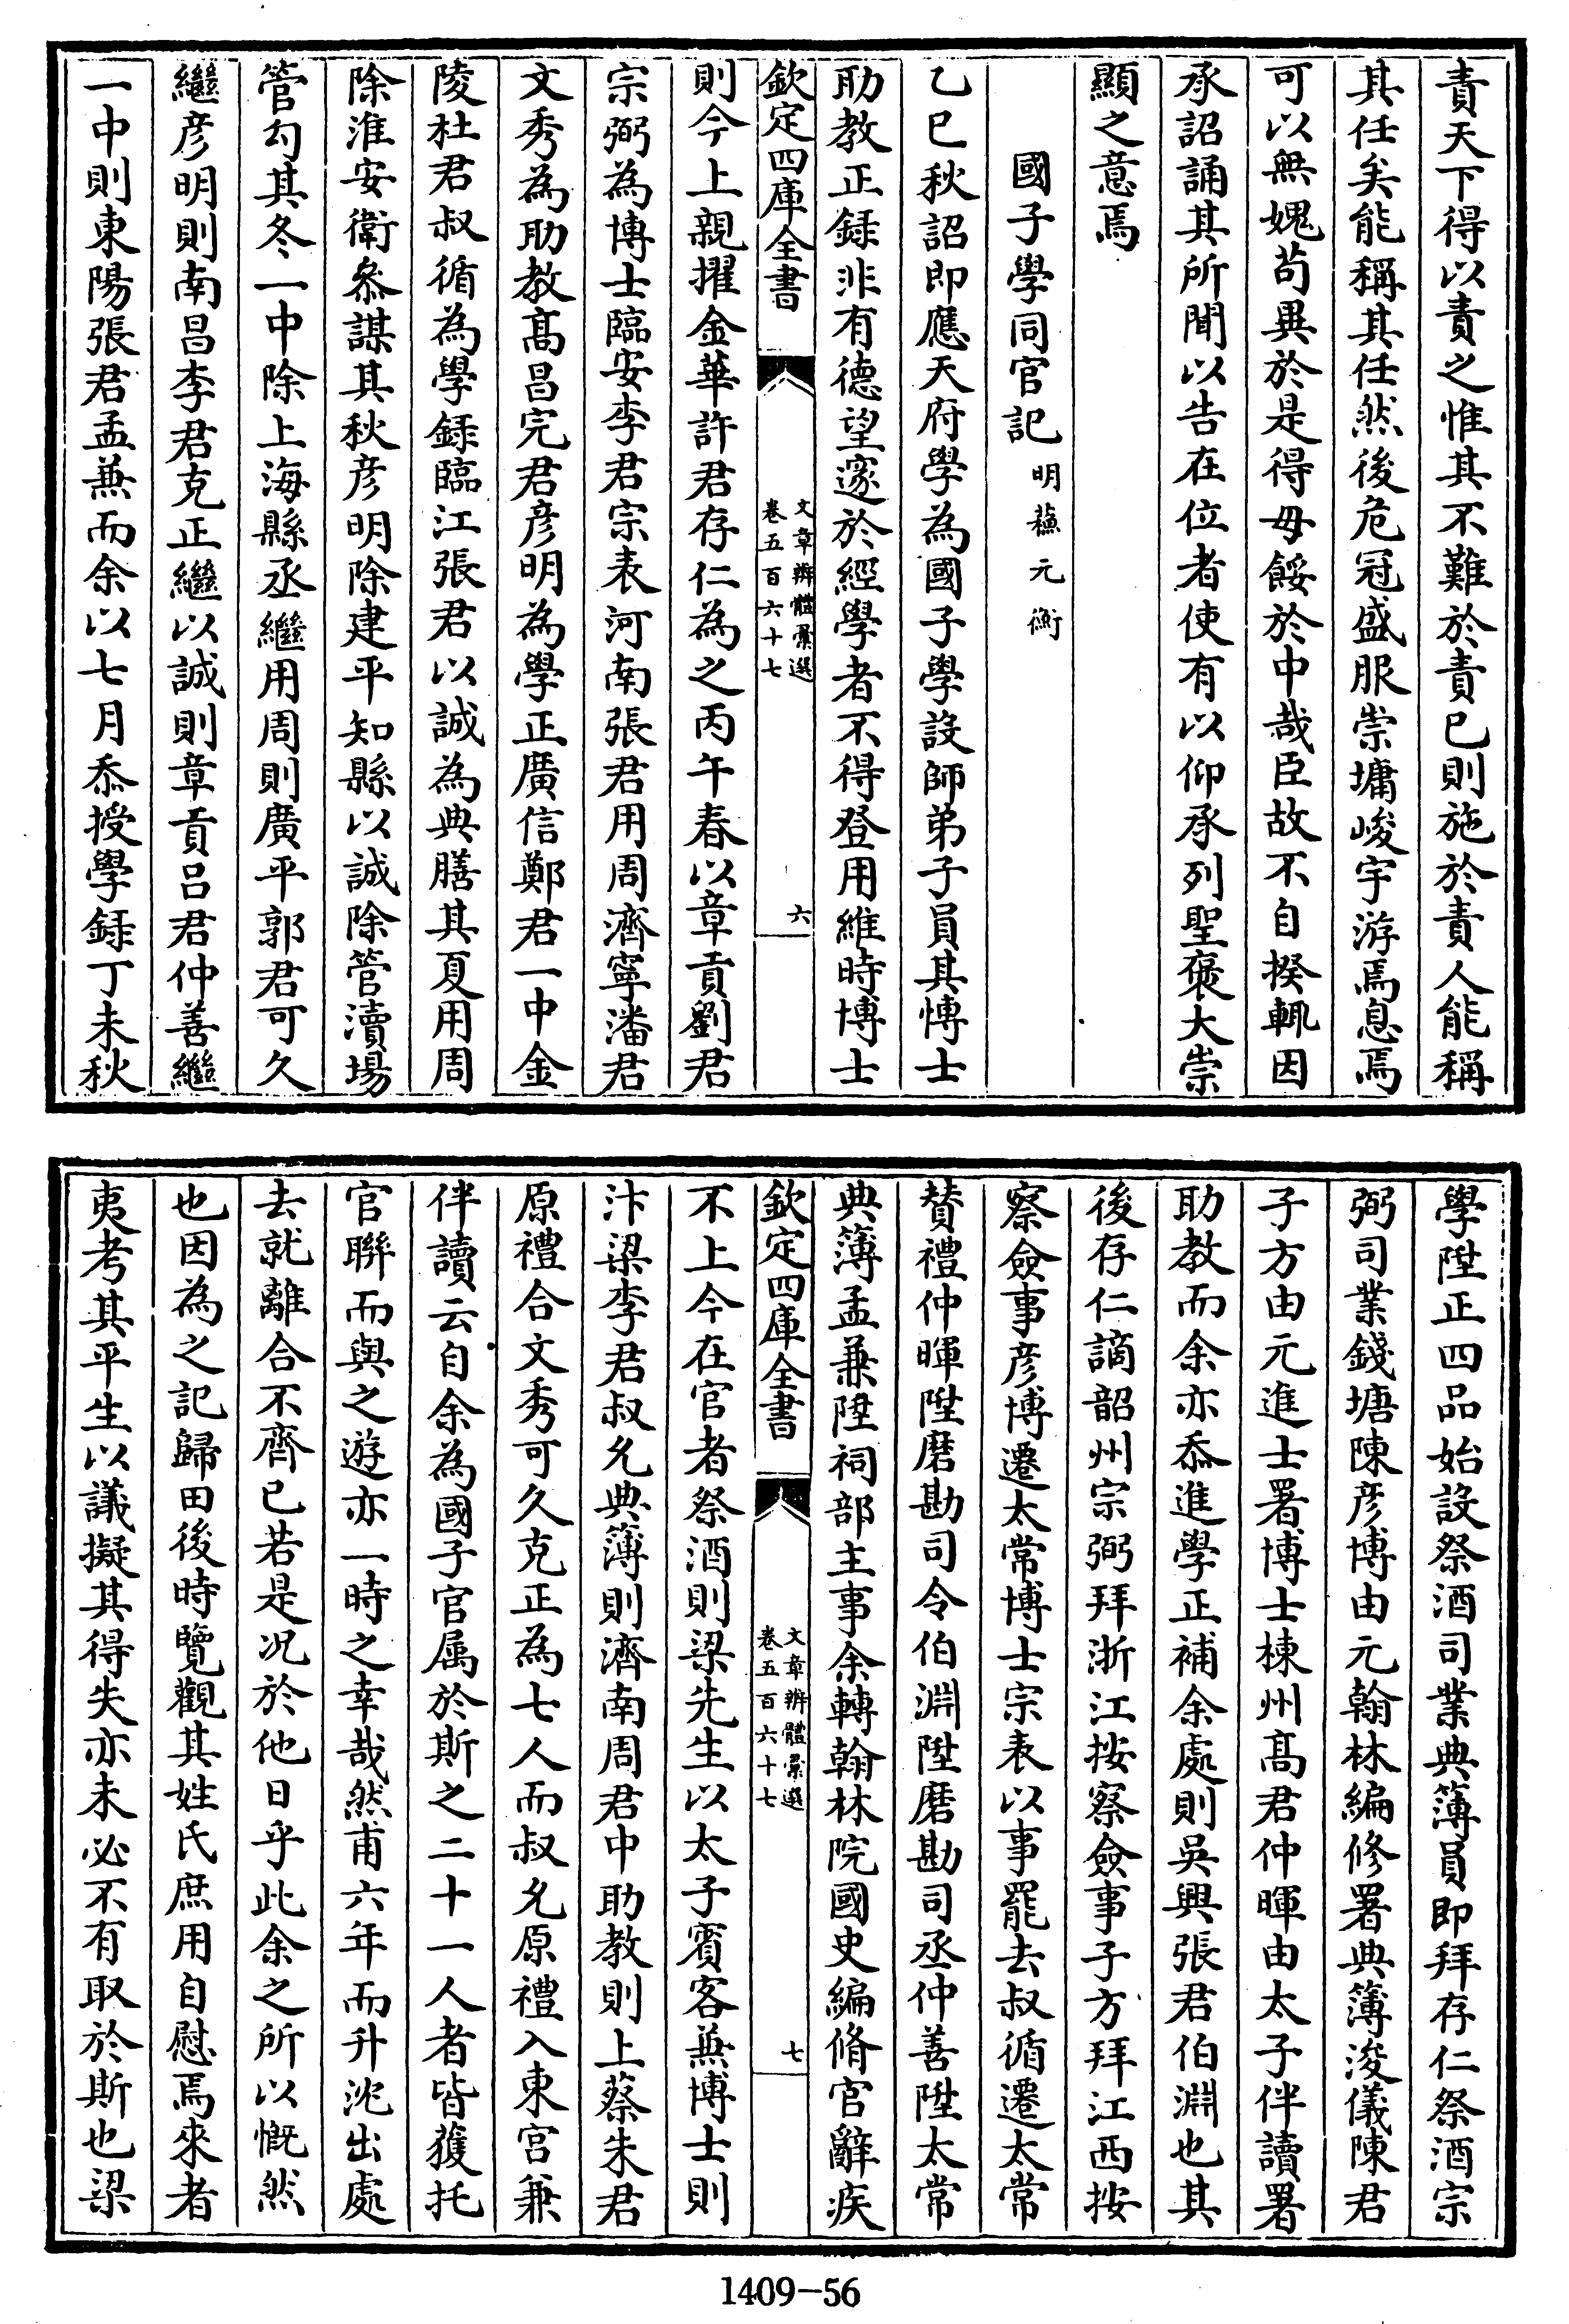 責天下得以責之惟其不難於責已則施於責人能稱
其任矣能稱其任然後危冠盛服崇墉峻宇游焉息焉
可以無媿茍異於是得毋餒於中哉臣故不自揆輒因
承詔誦其所聞以告在位者使有以仰承列聖褒大崇
顯之意焉
國子學同官記 明蘇元衡
乙巳秋詔即應天府學為國子學設師弟子員其博士
助教正録非有德望邃於經學者不得登用維時博士
欽定四庫全書 文章辨體彙選 卷五百六十七 六
則今上親擢金華許君存仁為之丙午春以章貢劉君
宗弼為博士臨安李君宗表河南張君用周濟寧潘君
文秀為助教髙昌完君彦明為學正廣信鄭君一中金
陵杜君叔循為學録臨江張君以誠為典膳其夏用周
除淮安衛叅謀其秋彦明除建平知縣以誠除管瀆場
管勾其冬一中除上海縣丞繼用周則廣平郭君可久
繼彦明則南昌李君克正繼以誠則章貢吕君仲善繼
一中則東陽張君孟兼而余以七月忝授學録丁未秋
學陞正四品始設祭酒司業典簿員即拜存仁祭酒宗
弼司業錢塘陳彦博由元翰林編修署典簿浚儀陳君
子方由元進士署博士棣州髙君仲暉由太子伴讀署
助教而余亦忝進學正補余處則吳興張君伯淵也其
後存仁謫韶州宗弼拜浙江按察僉事子方拜江西按
察僉事彦博遷太常博士宗表以事罷去叔循遷太常
賛禮仲暉陞磨勘司令伯淵陞磨勘司丞仲善陞太常
典簿孟兼陞祠部主事余轉翰林院國史編脩官辭疾
欽定四庫全書 文章辨體彙選 卷五百六十七 七
不上今在官者祭酒則梁先生以太子賓客兼博士則
汴梁李君叔允典簿則濟南周君中助教則上蔡朱君
原禮合文秀可久克正為七人而叔允原禮入東宮兼
伴讀云自余為國子官属於斯之二十一人者皆獲托
官聨而與之遊亦一時之幸哉然甫六年而升沈出處
去就離合不齊已若是况於他日乎此余之所以慨然
也因為之記歸田後時覽觀其姓氏庶用自慰焉來者
夷考其平生以議擬其得失亦未必不有取於斯也梁
1409-56